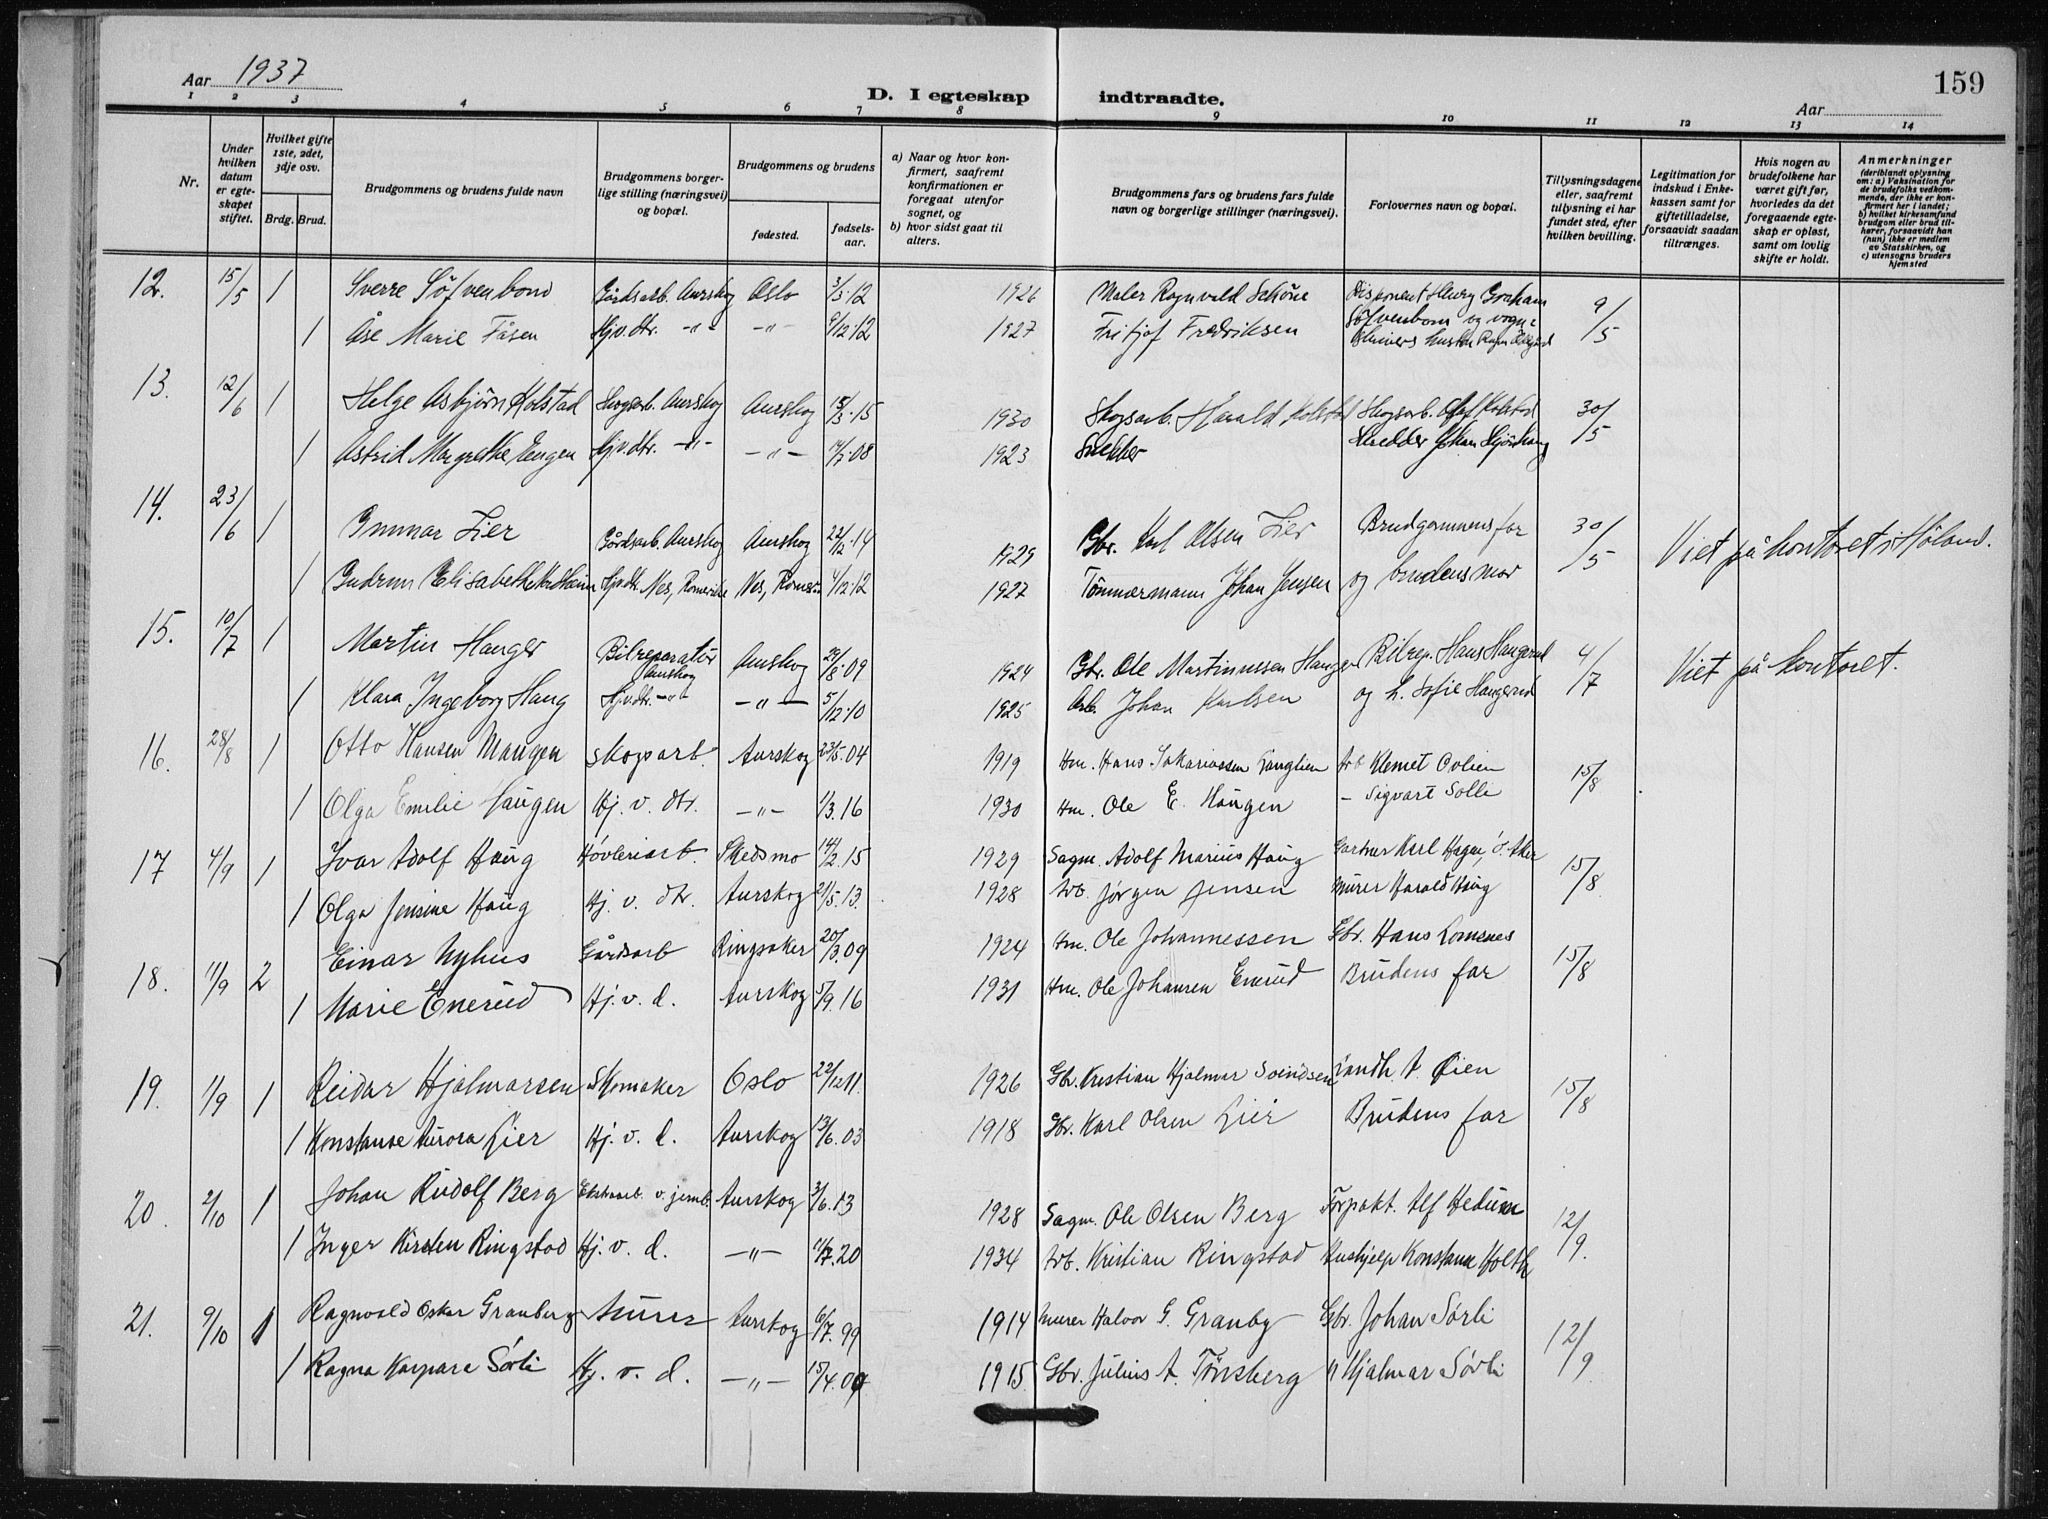 Aar 1937
159
D. I egteskap indtraadte.
Aar
1 2 3 4 5 6 7 8 9 10 11 12 13 14
Nr.
Under hvilken datum er egteskapet stiftet.
Hvilket gifte 1ste, 2det, 3dje osv.
Brdg. Brud.
Brudgommens og brudens fulde navn
Brudgommens borgerlige stilling (næringsvei) og bopæl.
Brudgommens og brudens
fødested. fødselsaar.
a) Naar og hvor konfirmert, saafremt konfirmationen er foregaat utenfor sognet, og
b) hvor sidst gaat til alters.
Brudgommens fars og brudens fars fulde navn og borgerlige stillinger (næringsvei).
Forlovernes navn og bopæl.
Tillysningsdagene eller, saafremt tillysning ei har fundet sted, efter hvilken bevilling.
Legitimation for indskud i Enkekassen samt for giftetilladelse, forsaavidt saadan tiltrænges.
Hvis nogen av brudefolkene har været gift før, hvorledes da det foregaaende egteskap er opløst, samt om lovlig skifte er holdt.
Anmerkninger (deriblandt oplysning om: a) Vaksination for de brudefolks vedkommende, der ikke er konfirmert her i landet; b) hvilket kirkesamfund brudgom eller brud tilhører, forsaavidt han (hun) ikke er medlem av Statskirken, og c) utensogns bruders hjemsted
12. 15/5 1 Sverre Söfvenbom Gårdsarb. Aurskog Oslo 3/5.12 1926 Maler Ragnvald Schöne Disponent Henry Graham 9/5
1 Åse Marie Fåsen Hjv. dtr. -"- -"- 9/12.12 1927 Fritjof Fredriksen Söfvenbom og
13. 12/6 1 Helge Asbjørn Kolstad Skogsarb. Aurskog Aurskog 15 1930 Skogsarb. Harald Kolstad Skogsarb. Olaf Kolstad 30/5
1 Astrid Margrethe Engen Hjv. dtr. -"- -"- 08 1923 Snekker Skredder Johan
14. 23/6 1 Gunnar Lier Gårdsarb. Aurskog Aurskog 22/12.14 1929 Gbr. Karl Olsen Lier Brudgommens far 30/5 Viet på kontoret i Høland.
1 Gudrun Elisabeth Hjv. dtr. Nes, Romerike Nes, Romerike 4/12.12 1927 Tömmermann Johan Jensen og brudens mor
15. 10/7 1 Martin Hanger Bilreparatör Aurskog Aurskog 29/8.09 1924 Gbr. Ole Martinussen Hanger Bilrep. Hans Hangerud 4/7 Viet på kontoret.
1 Klara Ingeborg Haug Hjv. dtr. -"- -"- 5/12.10 1925 Arb. Johan Karlsen og h. Sofie Hangerud
16. 28/8 1 Otto Hansen Mangen Skogsarb. Aurskog 23/5.04 1919 Hm. Hans Sakariassen Langlien Arb Klemet Colien 15/8
1 Olga Emilie Haugen Hj. v. dtr. -"- 1/3.16 1930 Hm. Ole E. Haugen - Sigvart Solli
17 4/9 1 Ivar Adolf Haug Høvleriarb. Skedsmo 14/2.15 1929 Sagm. Adolf Marius Haug Gartner Karl Hagen, Ö. Aker 15/8
1 Olga Jensine Haug Hj. v. dtr. Aurskog 21/5.13. 1928 Arb. Jørgen Jensen Murer Harald Haug
18. 11/9 2 Einar Nyhus Gårdsarb Ringsaker 20/3.09 1924 Hm. Ole Johannessen Gbr. Hans Lomsnes 15/8
1 Marie Enerud Hj. v. d. Aurskog 5/9.16 1931 Hm. Ole Johansen Enerud Brudens far
19. 11/9 1 Reidar Hjalmarsen Skomaker Oslo 22/12.11. 1926 Gbr. Kristian Hjalmar Svindsen Landh. A. Øien 15/8
1 Konstanse Aurora Lier Hj. v. d. Aurskog 13/6.03 1918 Gbr. Karl Olsen Lier Brudens far
20. 2/10 1 Johan Rudolf Berg Ekstraarb. v. jernb. Aurskog 3/6.13 1928 Sagm. Ole Olsen Berg Forpakt. Alf Hedum 12/9.
1 Inger Kirsten Ringstad Hj. v. d. -"- 11/7.20 1934 Arb. Kristian Ringstad Hushjelp Konstanse Holth
21. 9/10 1 Ragnvald Oskar Granberg Murer Aurskog 6/7.99 1914 Murer Halvor G. Granby Gbr. Johan Sørli 12/9.
1 Ragna Kaspara Sørli Hj. v. d. -"- 15/4.00 1915 Gbr. Julius A. Tønsberg " Hjalmar Sørli